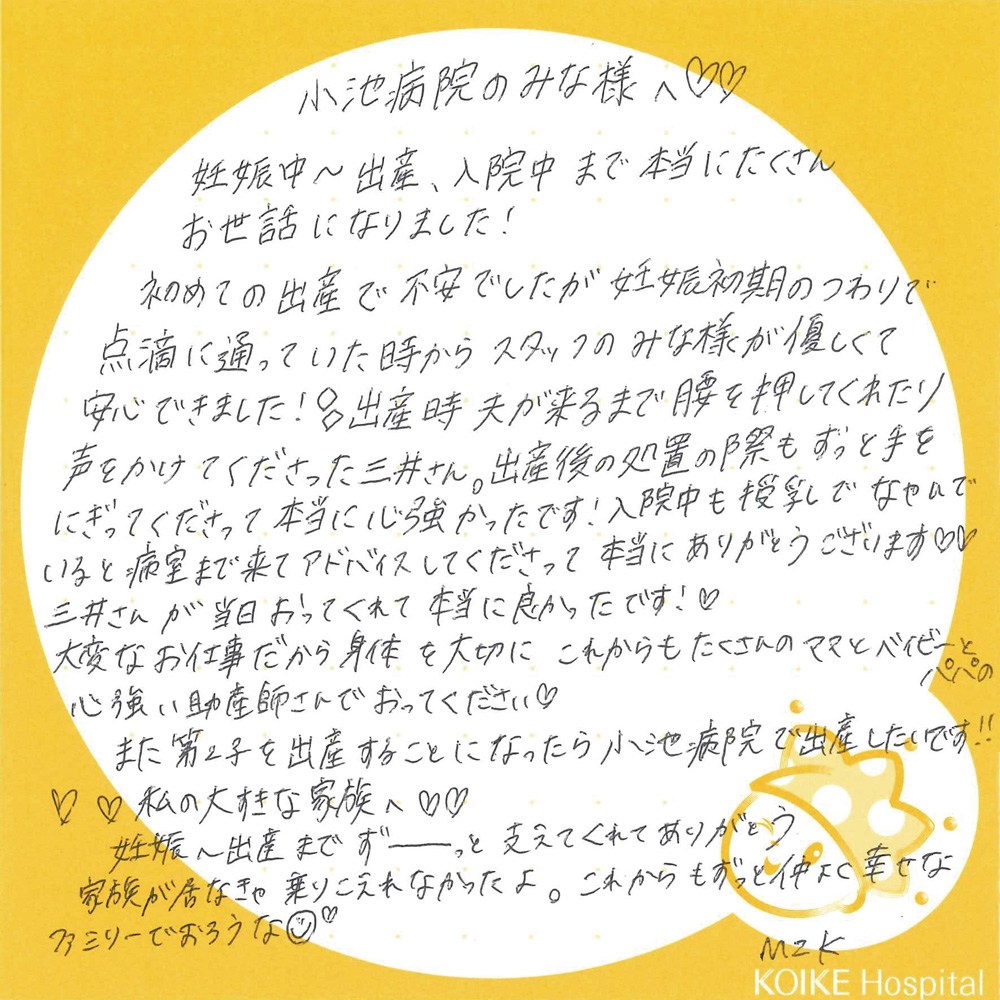 小池病院のみな様へ♡♡
妊娠中〜出産、入院中まで本当にたくさん
お世話になりました！
初めての出産で不安でしたが妊娠初期のつわりで
点滴に通っていた時からスタッフのみな様が優しくて
安心できました！出産時夫が来るまで腰を押してくれたり
声をかけてくださった三井さん。出産後の処置の際もずっと手を
にぎってくださって本当に心強かったです！入院中も授乳でなやんで
いると病室まで来てアドバイスしてくださって本当にありがとうございます♡♡
三井さんが当日おってくれて本当に良かったです！♡
大変なお仕事だから身体を大切にこれからもたくさんのママとベイビーと
パパの
心強い助産師さんでおってください♡
また第2子を出産することになったら小池病院で出産したいです!!
♡♡私の大すきな家族へ♡♡
妊娠〜出産までずーーっと支えてくれてありがとう
家族が居なきゃ乗りこえれなかったよ。これからもずっと仲よく幸せな
ファミリーでおろうな☺♡
M2K
KOIKE Hospital